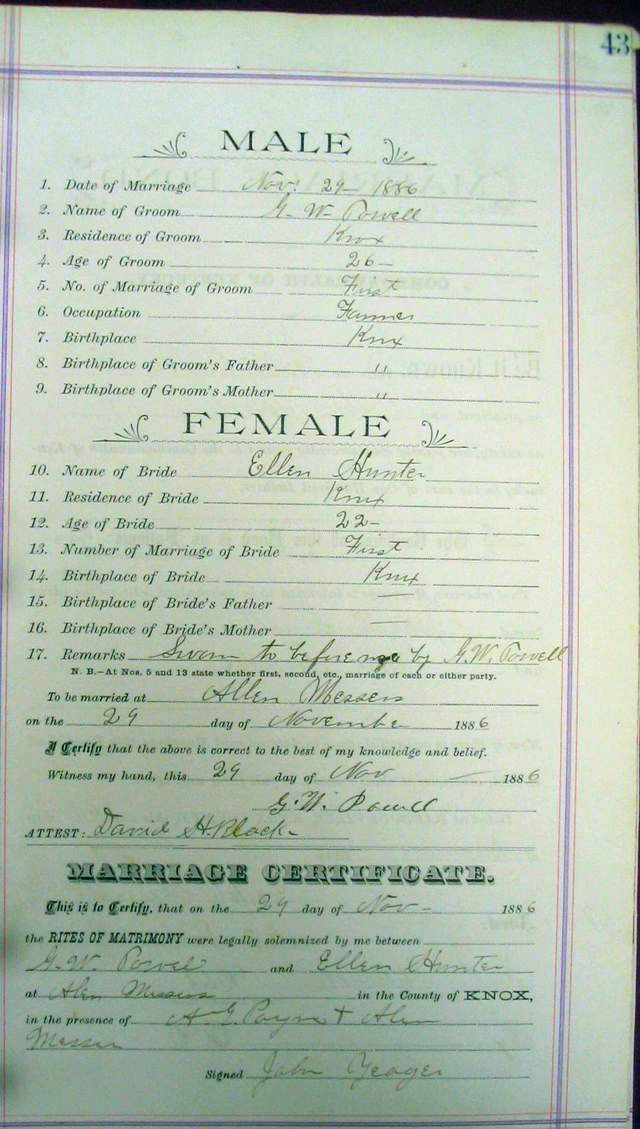 43
MALE
1. Date of Marriage Nov. 29 1886
2. Name of Groom G. W. Powell
3. Residence of Groom Knox
4. Age of Groom 26
5. No. of Marriage of Groom First
6. Occupation Farmer
7. Birthplace Knox
8. Birthplace of Groom's Father "
9. Birthplace of Groom's Mother "
FEMALE
10. Name of Bride Ellen Hunter
11. Residence of Bride Knox
12. Age of Bride 22
13. Number of Marriage of Bride First
14. Birthplace of Bride Knox
15. Birthplace of Bride's Father
16. Birthplace of Bride's Mother
17. Remarks Sworn to before me by G. W. Powell
N. B.—At Nos. 5 and 13 state whether first, second, etc., marriage of each or either party.
To be married at Allen Messers
on the 29 day of November 1886
I Certify that the above is correct to the best of my knowledge and belief.
Witness my hand, this 29 day of Nov 1886
G. W. Powell
ATTEST: David H. Black
MARRIAGE CERTIFICATE.
This is to Certify, that on the 29 day of Nov 1886
the RITES OF MATRIMONY were legally solemnized by me between
G. W. Powel and Ellen Hunter
at Alen Messers in the County of KNOX,
in the presence of Payne + Alen
Messer
Signed John Yeager